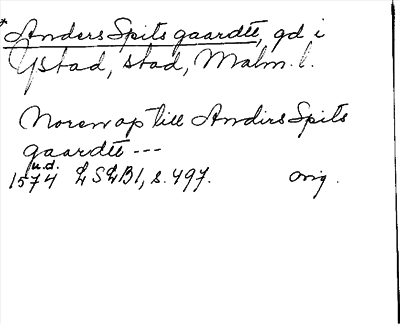 *Anders Spits gaardtt, gd i
Ystad, stad, Malm. l.
Noren op till Anders Spits
gaardtt ---
u.d.
1574 LSLB1, s. 497. orig.